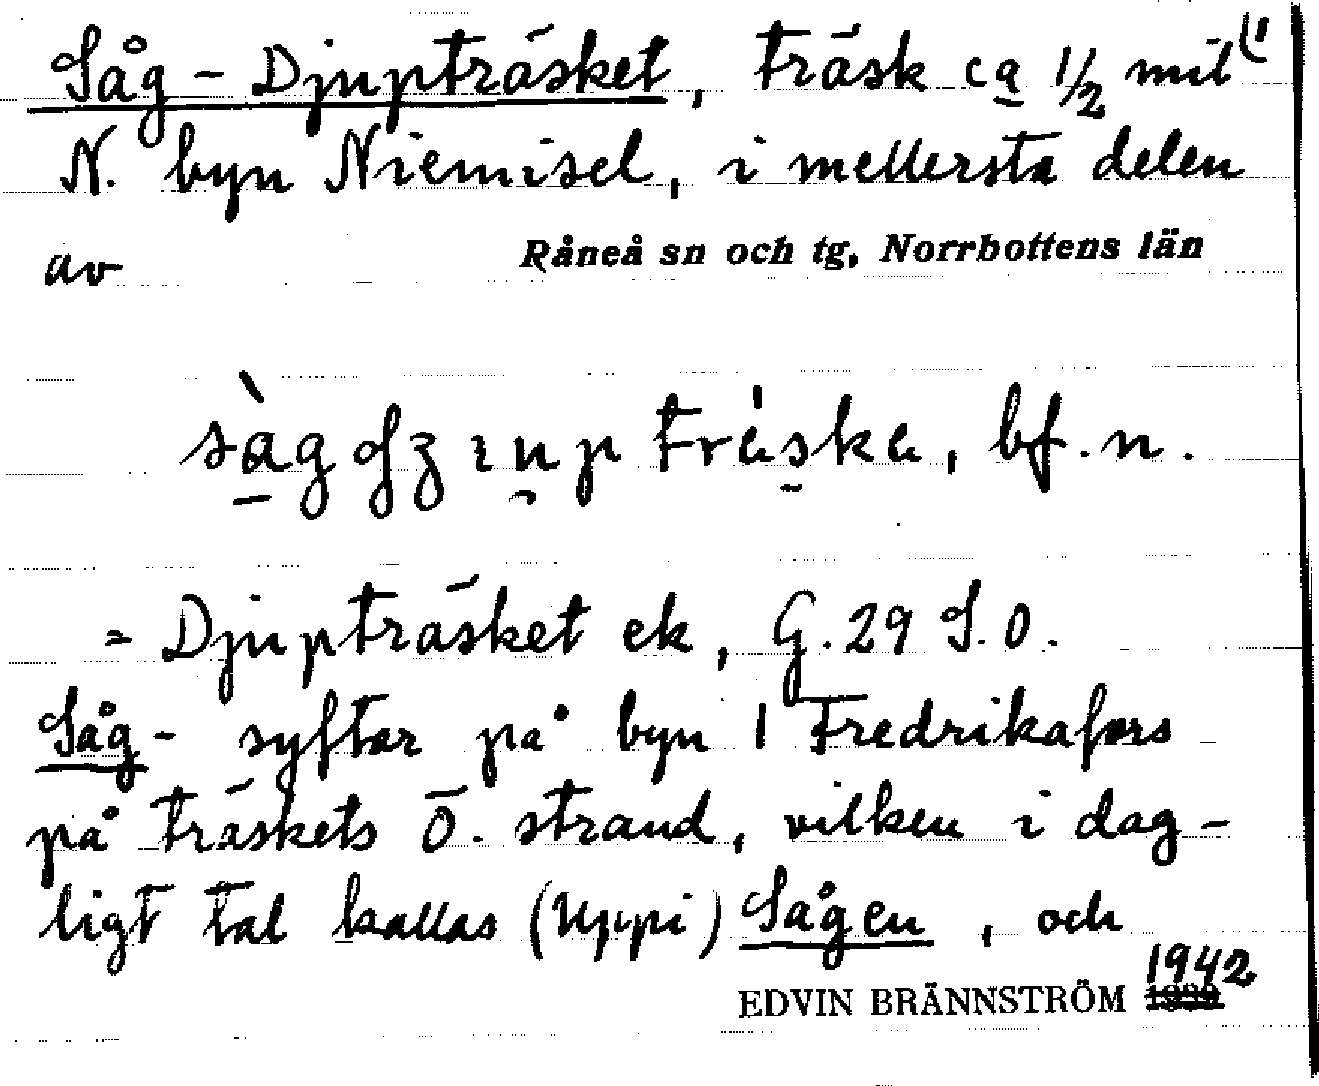 Såg-Djupträsket, träsk ca 1/2 mil
N. byn Niemisel, i mellersta delen
av Råneå sn och tg, Norrbottens län
bf. n.
= Djupträsket ek, G. 29 S. O.
Såg- syftar på byn Fredrikafors
på träskets Ö. strand, vilken i dag-
ligt tal kallas (Uppi) Sågen, och
EDVIN BRÄNNSTRÖM 1942